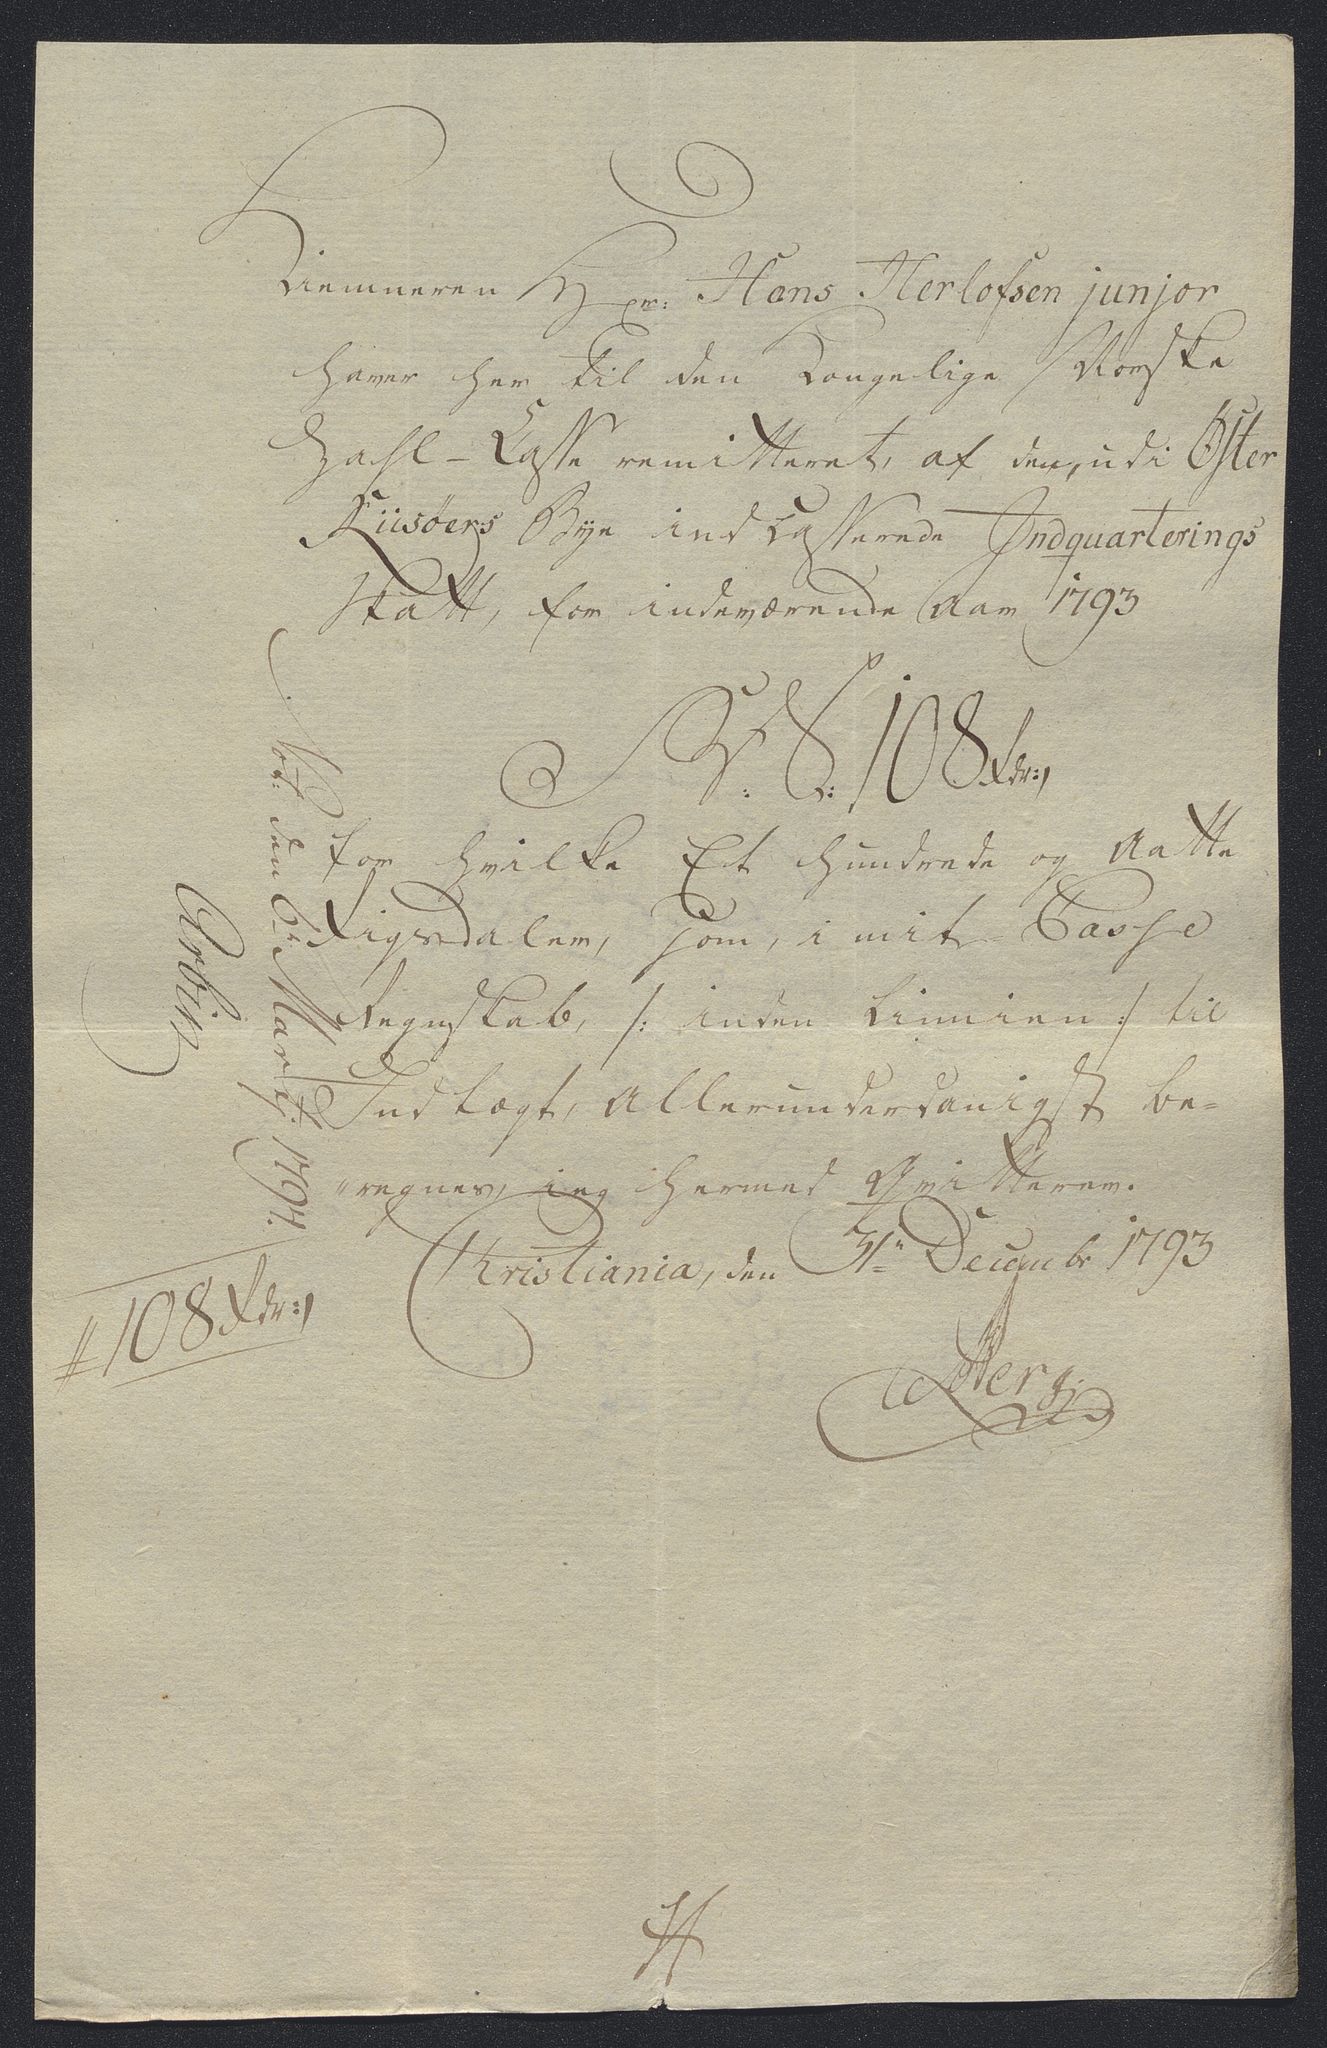 Kiemneren Hr: Hans Herlofsen junjor
haver her til den Kongelige Norske
Zahl-Casse remitteret, af den, udi Öster
Riisöers Bye indcasserede Indquarterings
Skatt, for indeværende Aar 1793
108 Rdr:
for hvilke Et hundrede og Aatte
Rigsdaler, som, i mit Casse
Regnskab, /: inden Linnien :/ til
Indtægt, Allerunderdanigst be-
"regnes, ieg hermed Qvitterer.
Christiania, den 31te Decembr 1793
Berg
den 6te Martj: 1794.
Arbin
# 108 Rdr: